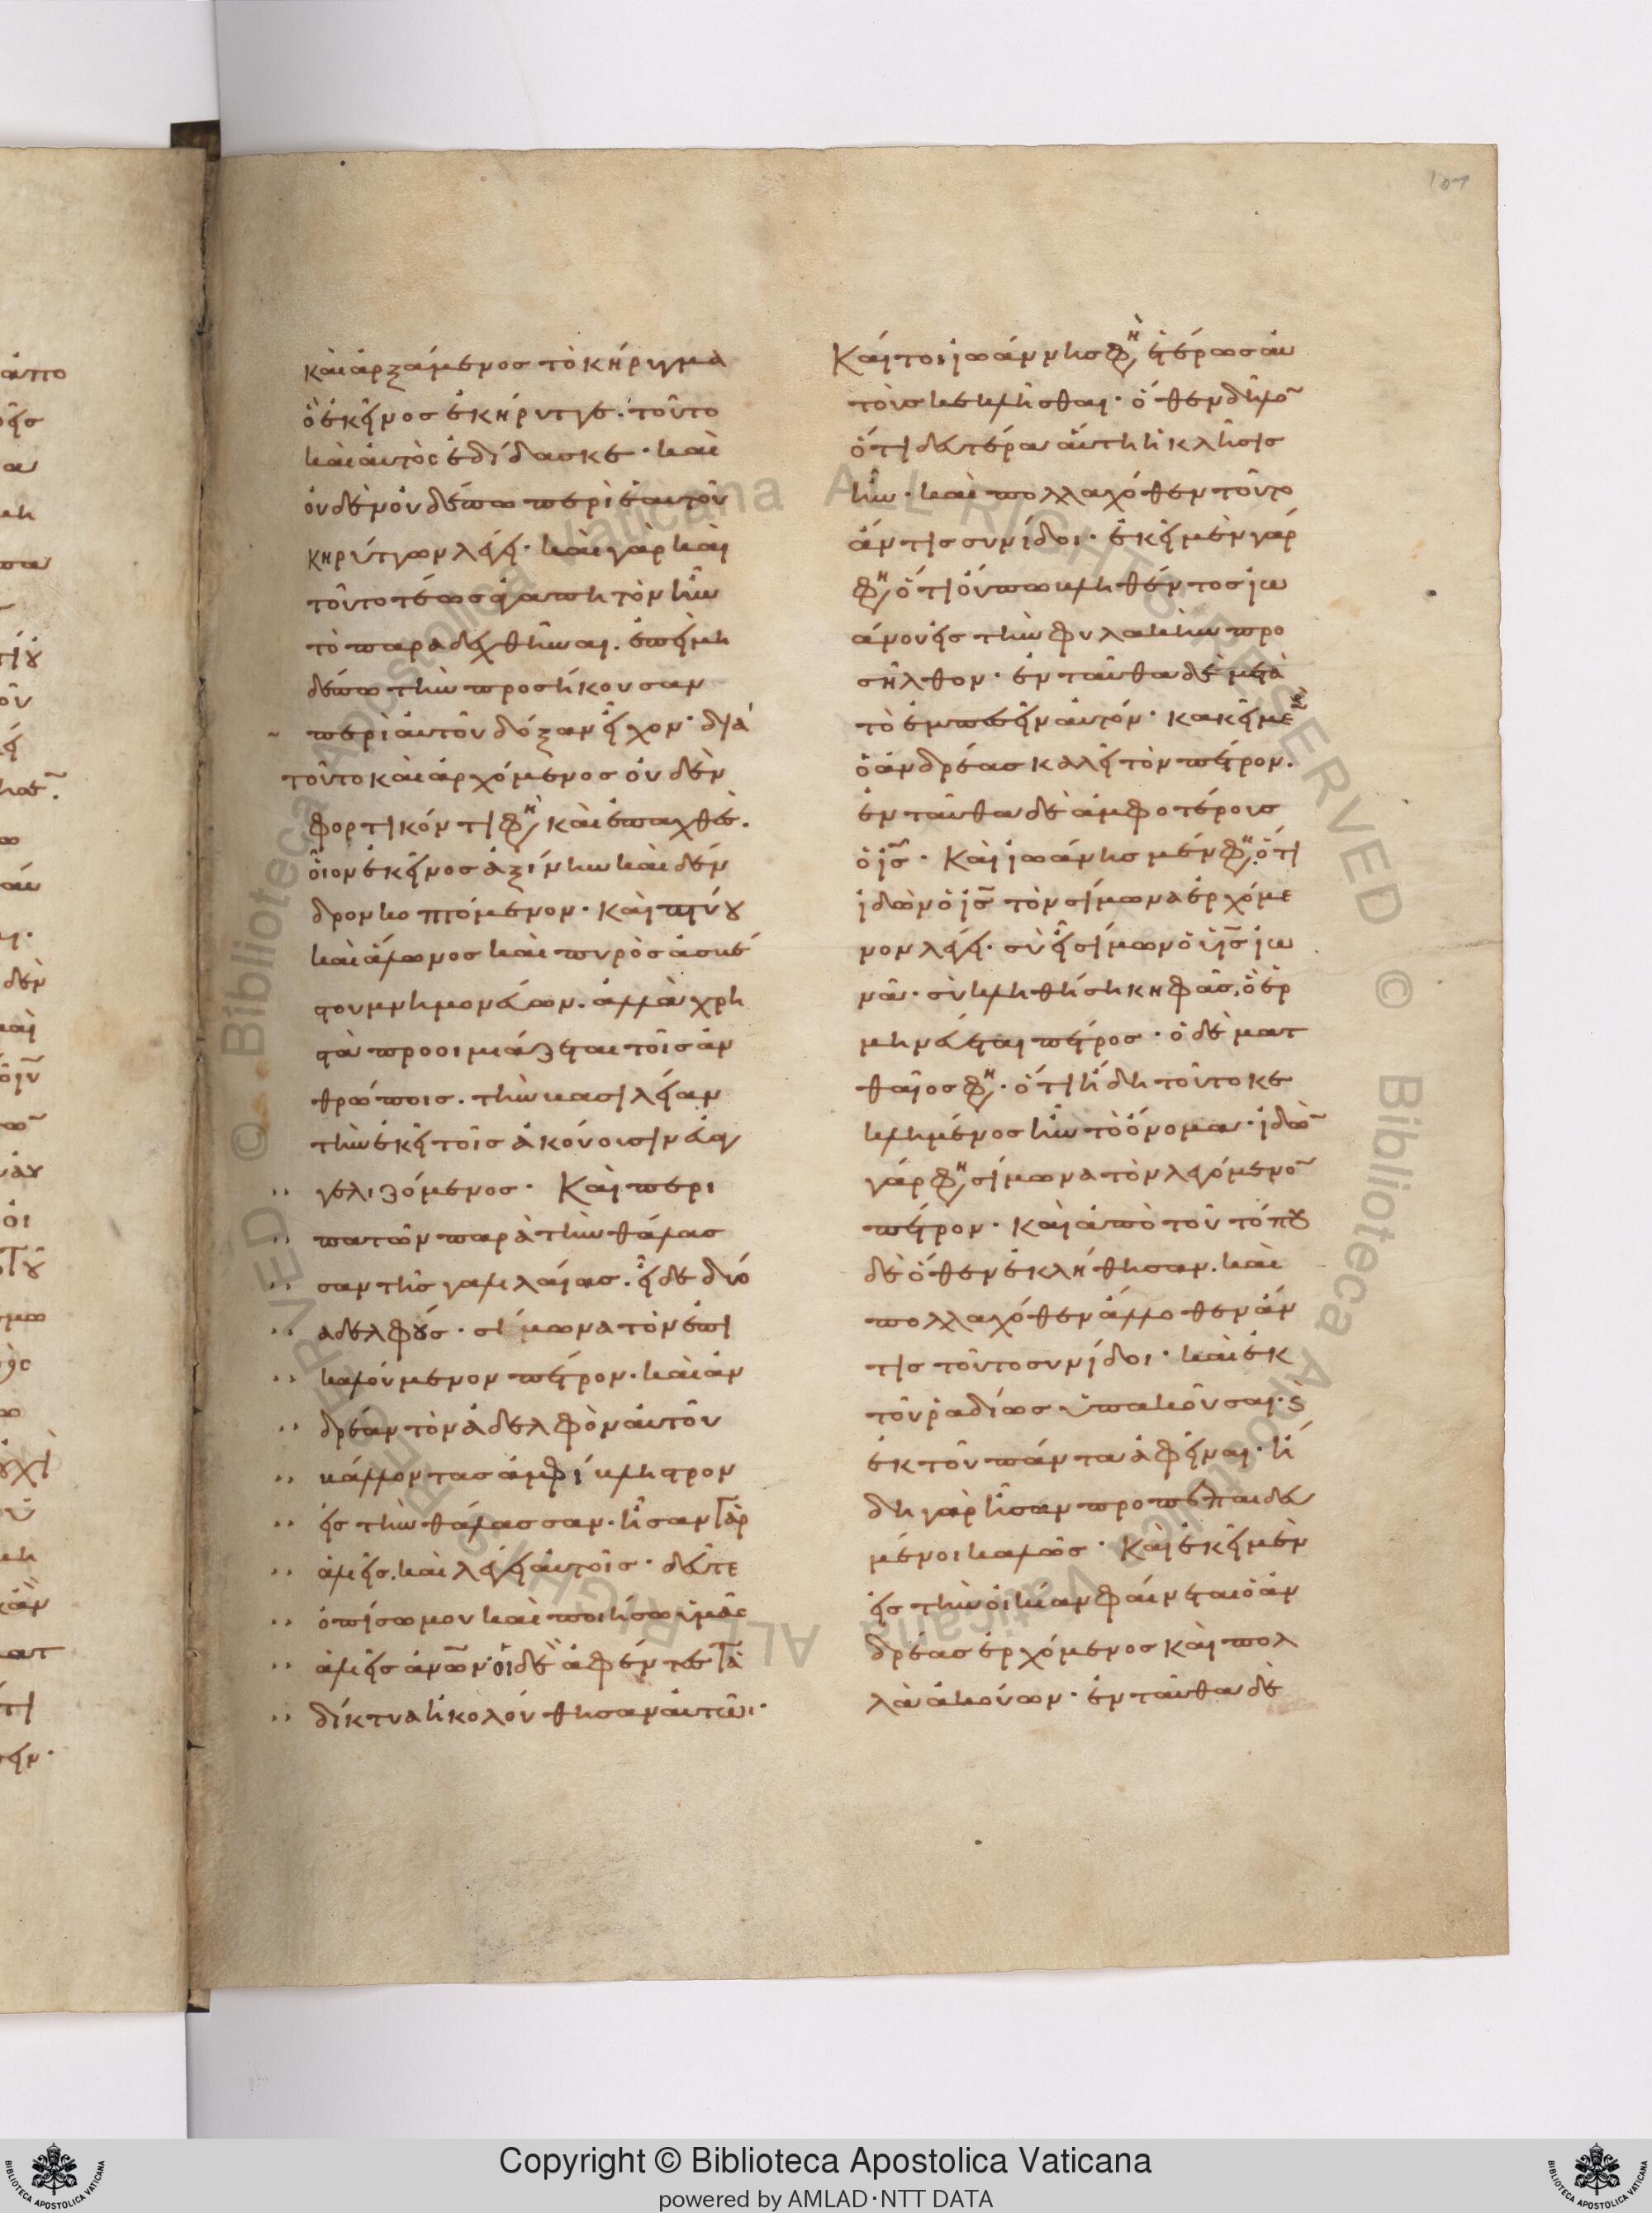 107
καὶ ἀρξάμενος τὸ κήρυγμα
ὃ ἐκεῖνος ἐκήρυττε. τοῦτο
καὶ αὐτὸς ἐδίδασκε· καὶ
οὐδὲν οὐδέπω περὶ ἑαυτοῦ
κηρύττων λέγει· καὶ γὰρ καὶ
τοῦτο τέως ἀγαπητὸν ἦν
τὸ παραδεχθῆναι. ἐπεὶ μὴ
δέπω τὴν προσήκουσαν
περὶ αὐτοῦ δόξαν εἶχον· διὰ
τοῦτο καὶ ἀρχόμενος οὐδὲν
φορτικόν τι φη καὶ ἐπαχθὲ.
οἷον ἐκεῖνος ἀξίνην καὶ δέν
δρον κοπτόμενον· καὶ πτύου
καὶ ἅλωνος καὶ πυρὸς ἀσβέ
του μνημονεύων. ἀλλὰ χρη
στὰ προοιμιάζεται τοῖς ἀν
θρώποις. τὴν βασιλείαν
τὴν ἐκεῖ τοῖς ἀκούουσιν εὐαγ
γελιζόμενος· Καὶ περι
πατῶν παρὰ τὴν θάλασ
σαν τῆς γαλιλαίας. εἶδε δύο
ἀδελφούς· σίμωνα τὸν ἐπι
καλούμενον πέτρον. καὶ ἀν
δρέαν τὸν ἀδελφὸν αὐτοῦ
βάλλοντας ἀμφίβληστρον
εἰς τὴν θάλασσαν· ἦσαν γὰρ
ἁλιεῖς. καὶ λέγει αὐτοῖς· δεῦτε
ὀπίσω μου καὶ ποιήσω ὑμᾶς
ἁλιεῖς ἀνων· οἱ δὲ ἀφέντες τὰ
δίκτυα ἠκολούθησαν αὐτῶι·
Καίτοι ἰωάννης φη ἑτέρως αὐ
τοὺς κεκλῆσθαι· ὅθεν δῆλο
ὅτι δευτέρα αὕτη ἡ κλῆσις
ἦν· καὶ πολλαχόθεν τοῦτο
ἄν τις συνίδοι· ἐκεῖ μὲν γάρ
φη ὅτι οὔπω βληθέντος ἰω
άννου εἰς τὴν φυλακὴν προ
σῆλθον· ἐνταῦθα δὲ μετὰ
τὸ ἐμπεσεῖν αὐτόν· κἀκεῖ με
ὁ ἀνδρέας καλεῖ τὸν πέτρον.
ἐνταῦθα δὲ ἀμφοτέρους
ὁ ις· Καὶ ἰωάνης μέν φη. ὅτι
ἰδὼν ὁ ις τὸν σίμωνα ἐρχόμε
νον λέγει· σὺ εἶ σίμων ὁ υἱς ἰω
νᾶ· σὺ κληθήση κηφᾶς. ὃ ἑρ
μηνεύεται πέτρος· ὁ δὲ ματ
θαῖος φη· ὅτι ἤδη τοῦτο κε
κλημένος ἦν τὸ ὄνομα· ἰδὼ
γάρ φη σίμωνα τὸν λεγόμενο
πέτρον· καὶ ἀπὸ τοῦ τόπου
δὲ ὅθεν ἐκλήθησαν. καὶ
πολλαχόθεν ἄλλοθεν ἄν
τις τοῦτο συνίδοι· καὶ ἐκ
τοῦ ῥαδίως ὑπακοῦσαι· ϛ
ἐκ τοῦ πάντα ἀφεῖναι· ἤ
δη γὰρ ἦσαν προπεπαιδευ
μένοι καλῶς· Καὶ ἐκεῖ μὲν
εἰς τὴν οἰκίαν φαίνεται ὁ ἀν
δρέας ἐρχόμενος καὶ πολ
λὰ ἀκούων· ἐνταῦθα δὲ
Copyright © Biblioteca Apostolica Vaticana
powered by AMLAD·NTT DATA